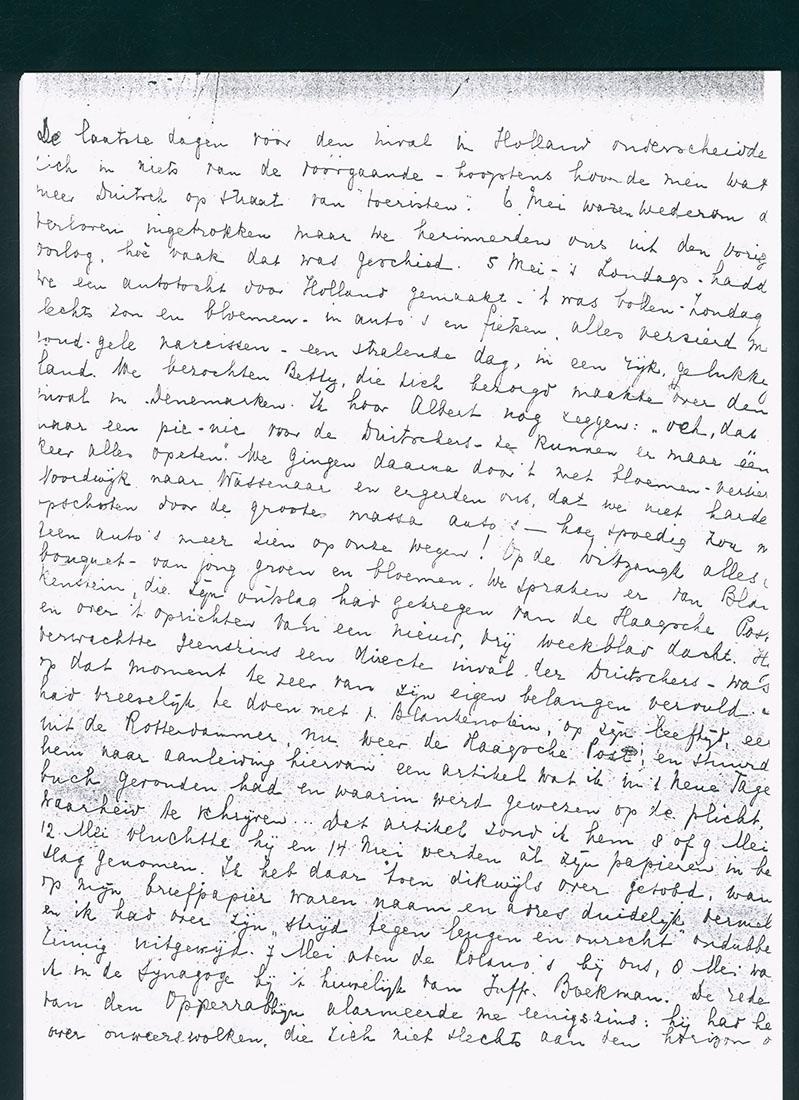 De laatste dagen voor den inval in Holland onderscheidde
zich in niets van de voorgaande - hoogstens hoorde men wat
meer Duitsch op straat van "toeristen". 6 Mei waren wederom d
verloven ingetrokken maar we herinnerden ons uit den vorig
oorlog, hoe vaak dat was geschied. 5 Mei - 's Zondags - hadd
we een autotocht door Holland gemaakt - 't was bollen-Zondag
slechts zon en bloemen - in auto's en fietsen, alles versierd m
goud-gele narcissen - een stralende dag, in een rijk, gelukkig
land. We bezochten Betty, die zich bezorgd maakte over den
inval in Denemarken. Ik hoor Albert nog zeggen: "och, dat
naar een pic-nic voor de Duitschers - ze kunnen er maar één
keer alles opeten". We gingen daarna door 't met bloemen-versier
Noordwijk naar Wassenaar en ergerden ons, dat we niet harde
opschoten door de groote massa auto's — hoe spoedig zou m
geen auto's meer zien op onze wegen! Op de alles
bouquet - van jong groen en bloemen. We spraken er van Blan
kenstein, die zijn ontslag had gekregen van de Haagsche Post
en over 't oprichten van een nieuw, vrij weekblad dacht. H
verwachtte geenszins een directe inval der Duitschers - was
op dat moment te zeer van zijn eigen belangen vervuld.
had vreeselijk te doen met v. Blankenstein, op zijn leeftijd, ee
uit de Rotterdammer, nu weer de Haagsche Post! en stuurd
hem naar aanleiding hiervan een artikel wat ik in 't Neue Tage
buch gevonden had en waarin werd gewezen op de plicht,
waarheid te schrijven... Dat artikel zond ik hem 8 of 9 Mei
12 Mei vluchtte hij en 14 Mei werden al zijn papieren in be
slag genomen. Ik heb daar toen dikwijls over getobd, wan
op mijn briefpapier waren naam en adres duidelijk vermel
en ik had over zijn "strijd tegen leugen en onrecht ondubbe
zinnig uitgewijd. 7 Mei aten de Polano's bij ons, 8 Mei wa
ik in de Synagoge bij 't huwelijk van Juffr. Boekman. De rede
van den Opperrabbijn alarmeerde me eenigszins: hij had he
over onweerswolken, die zich niet slechts aan den horizon o